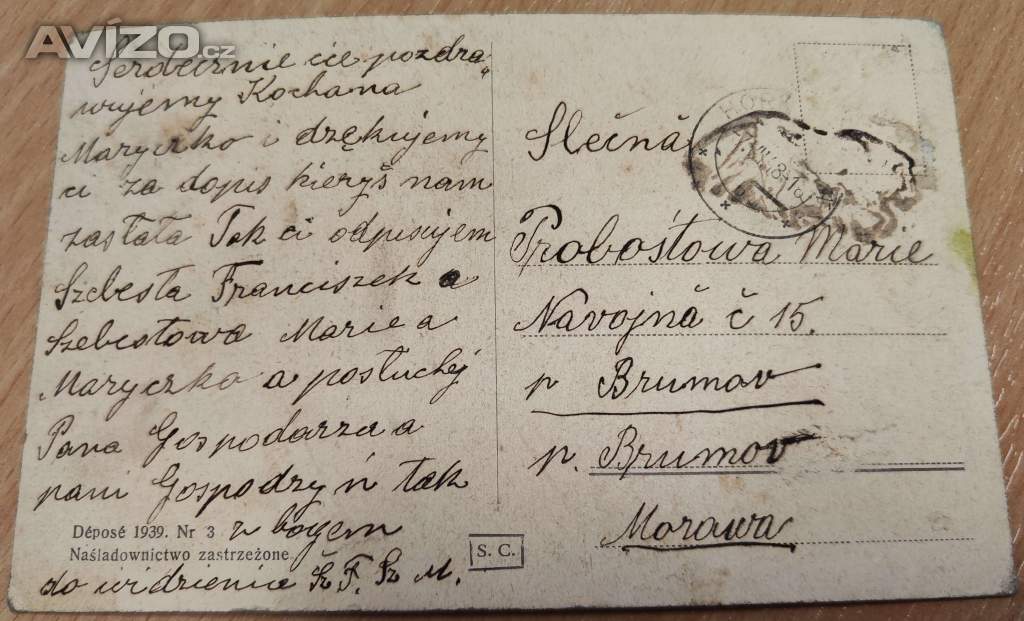 AVÍZO.cz
Serdecznie cie pozdra
wujemy Kochana
Maryczko i dzękujemy
ci za dopis kieryś nam
zasłała Tak ci odpisujem
Szebesta Franciszek a
Szebestowa Marie a
Maryczko a posłuchej
Pana Gospodarza a
pani Gospodzyń tak
z bogem
do widzenie Sz F. Sz M.
Déposé 1939. Nr 3
Naśladownictwo zastrzeżone
S. C.
Slečná
Probośtowa Marie
Navojná č 15.
p Brumov
p. Brumov
Morawa